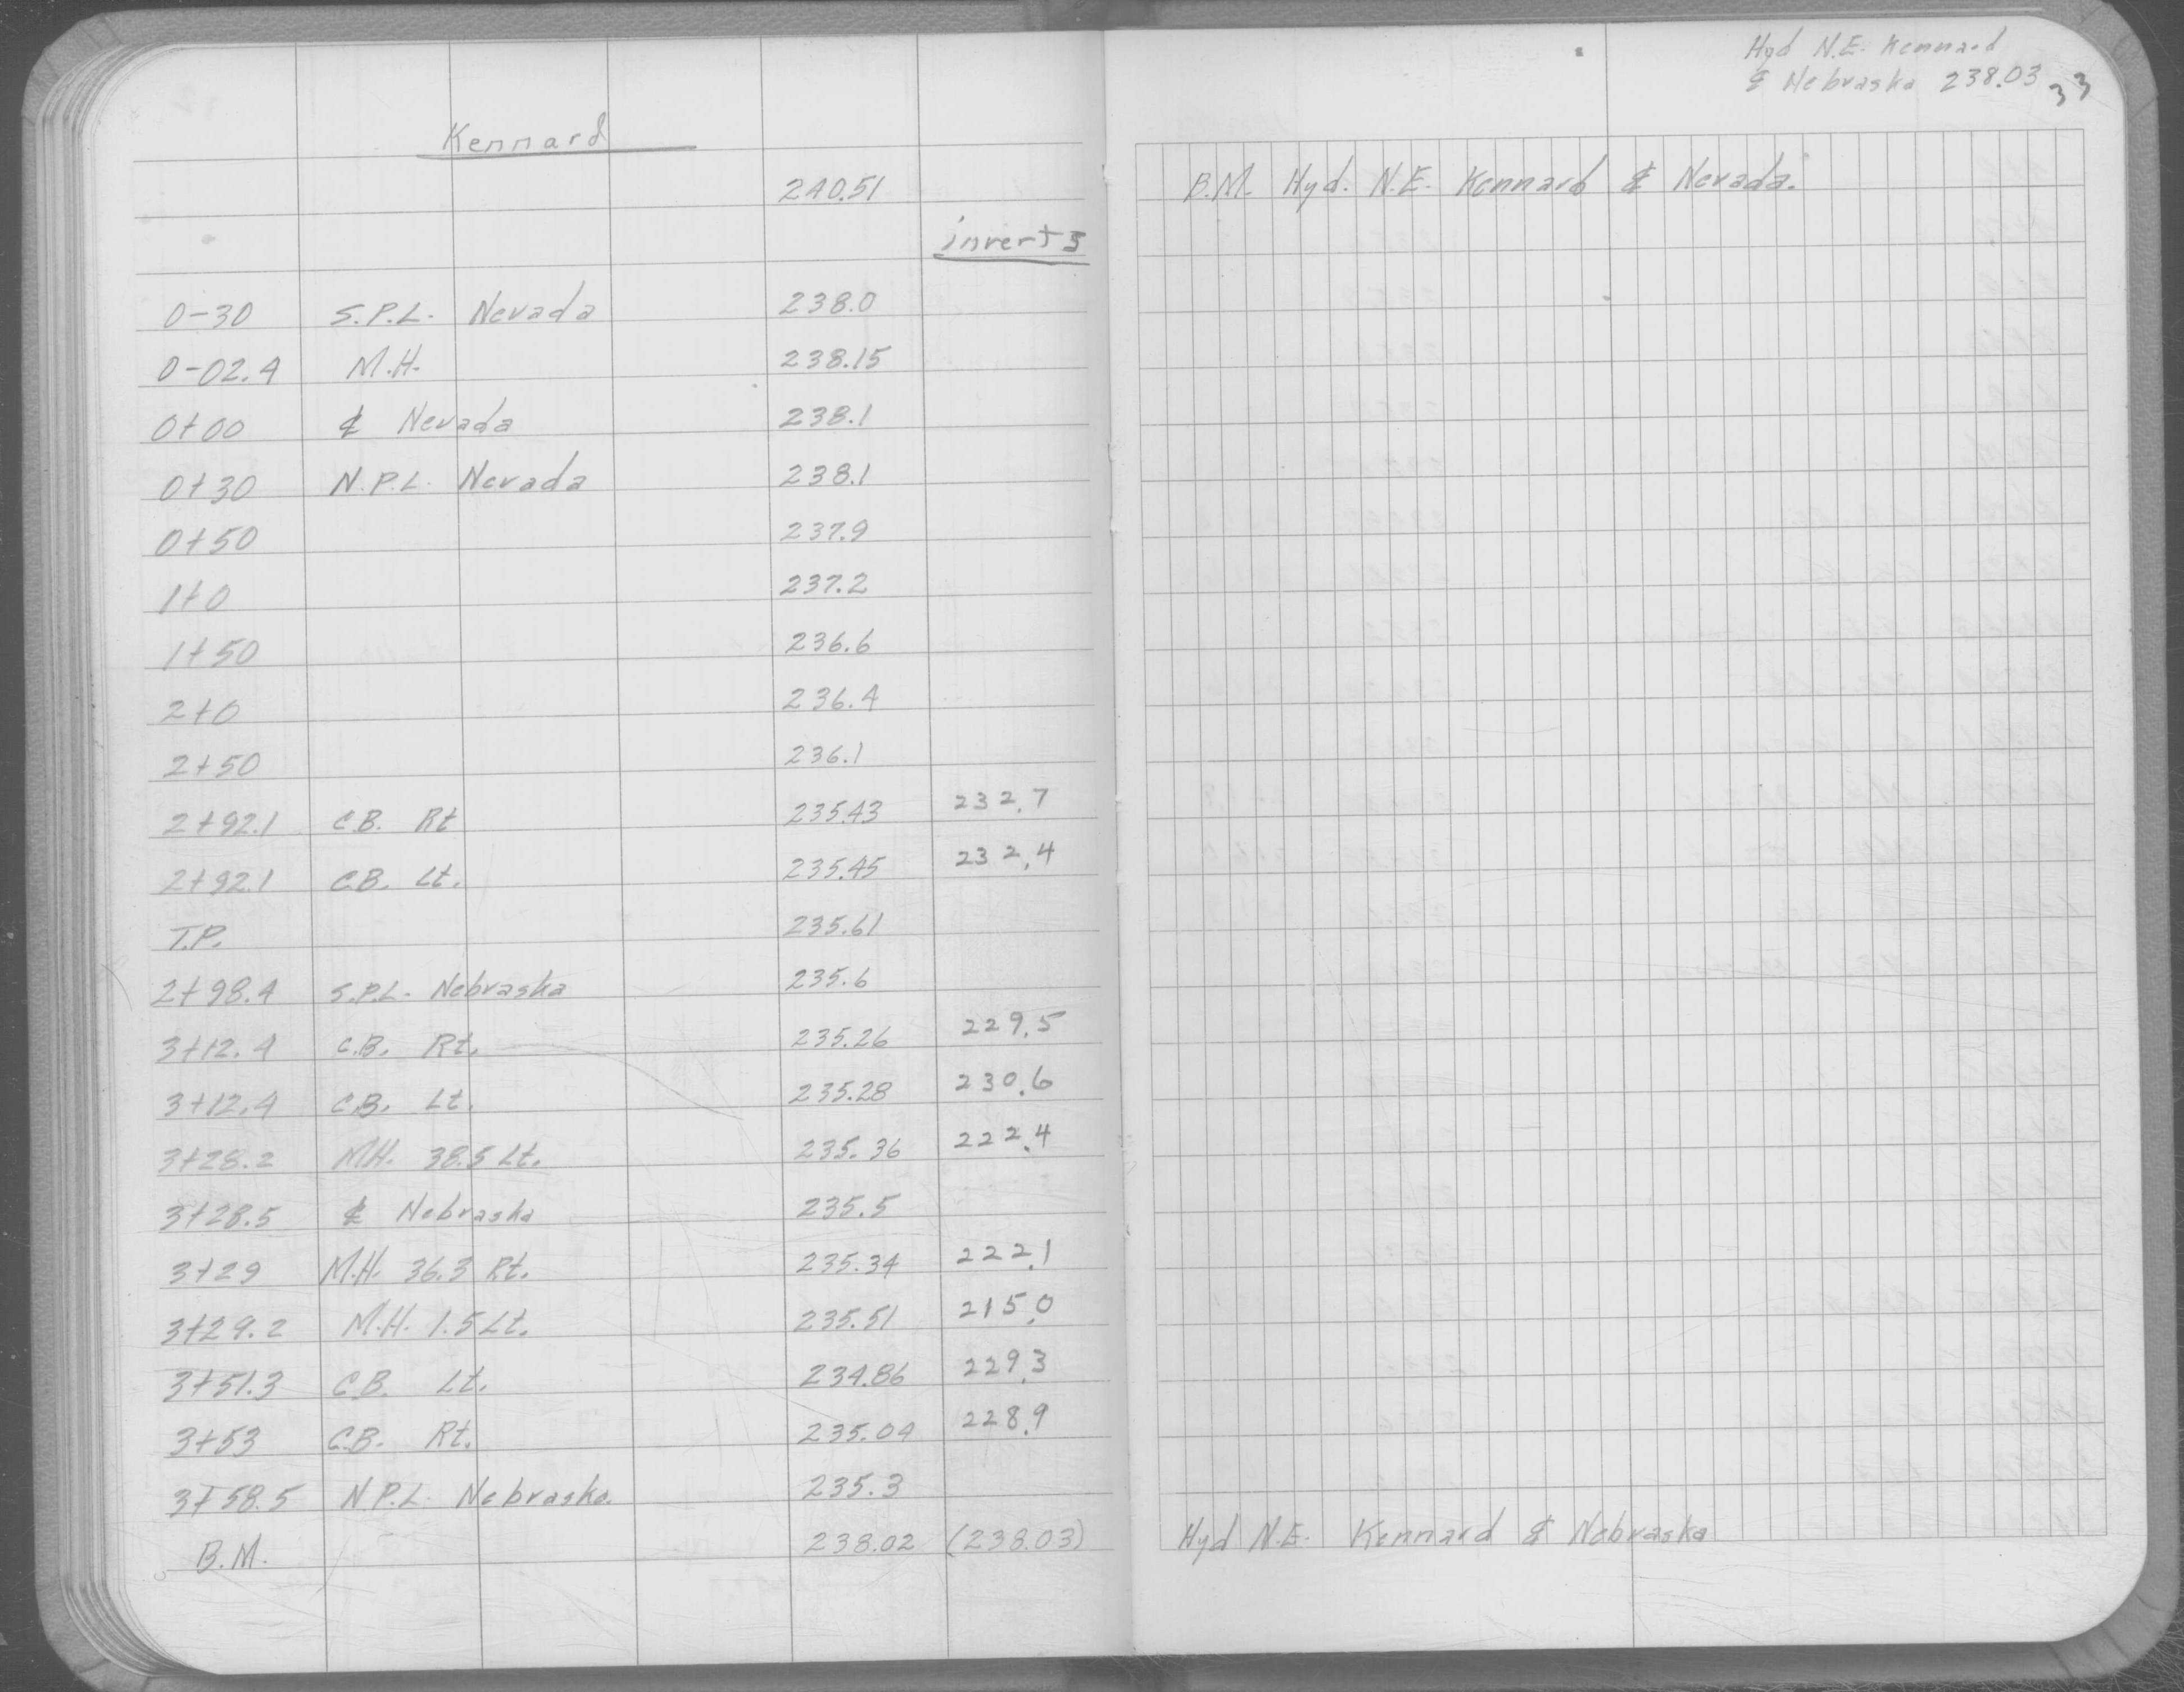 Kennard
240.51
inverts
0-30 S.P.L. Nevada 238.0
0-02.4 M.H. 238.15
0+00 ₵ Nevada 238.1
0+30 N.P.L. Nevada 238.1
0+50 237.9
1+0 237.2
1+50 236.6
2+0 236.4
2+50 236.1
2+92.1 C.B. Rt 235.43 232.7
2+92.1 C.B. Lt. 235.45 232.4
T.P. 235.61
2+98.4 S.P.L. Nebraska 235.6
3+12.4 C.B. Rt. 235.26 229.5
3+12.4 C.B. Lt. 235.28 230.6
3+28.2 M.H. 38.5 Lt. 235.36 222.4
3+28.5 ₵ Nebraska 235.5
3+29 M.H. 36.3 Rt. 235.34 222.1
3+29.2 M.H. 1.5 Lt. 235.51 215.0
3+51.3 C.B. Lt. 234.86 229.3
3+53 C.B. Rt. 235.04 228.9
3+58.5 N.P.L. Nebraska 235.3
B.M. 238.02 (238.03)
Hyd N.E. Kennard
& Nebraska 238.03
33
B.M. Hyd. N.E. Kennard & Nevada.
Hyd N.E. Kennard & Nebraska